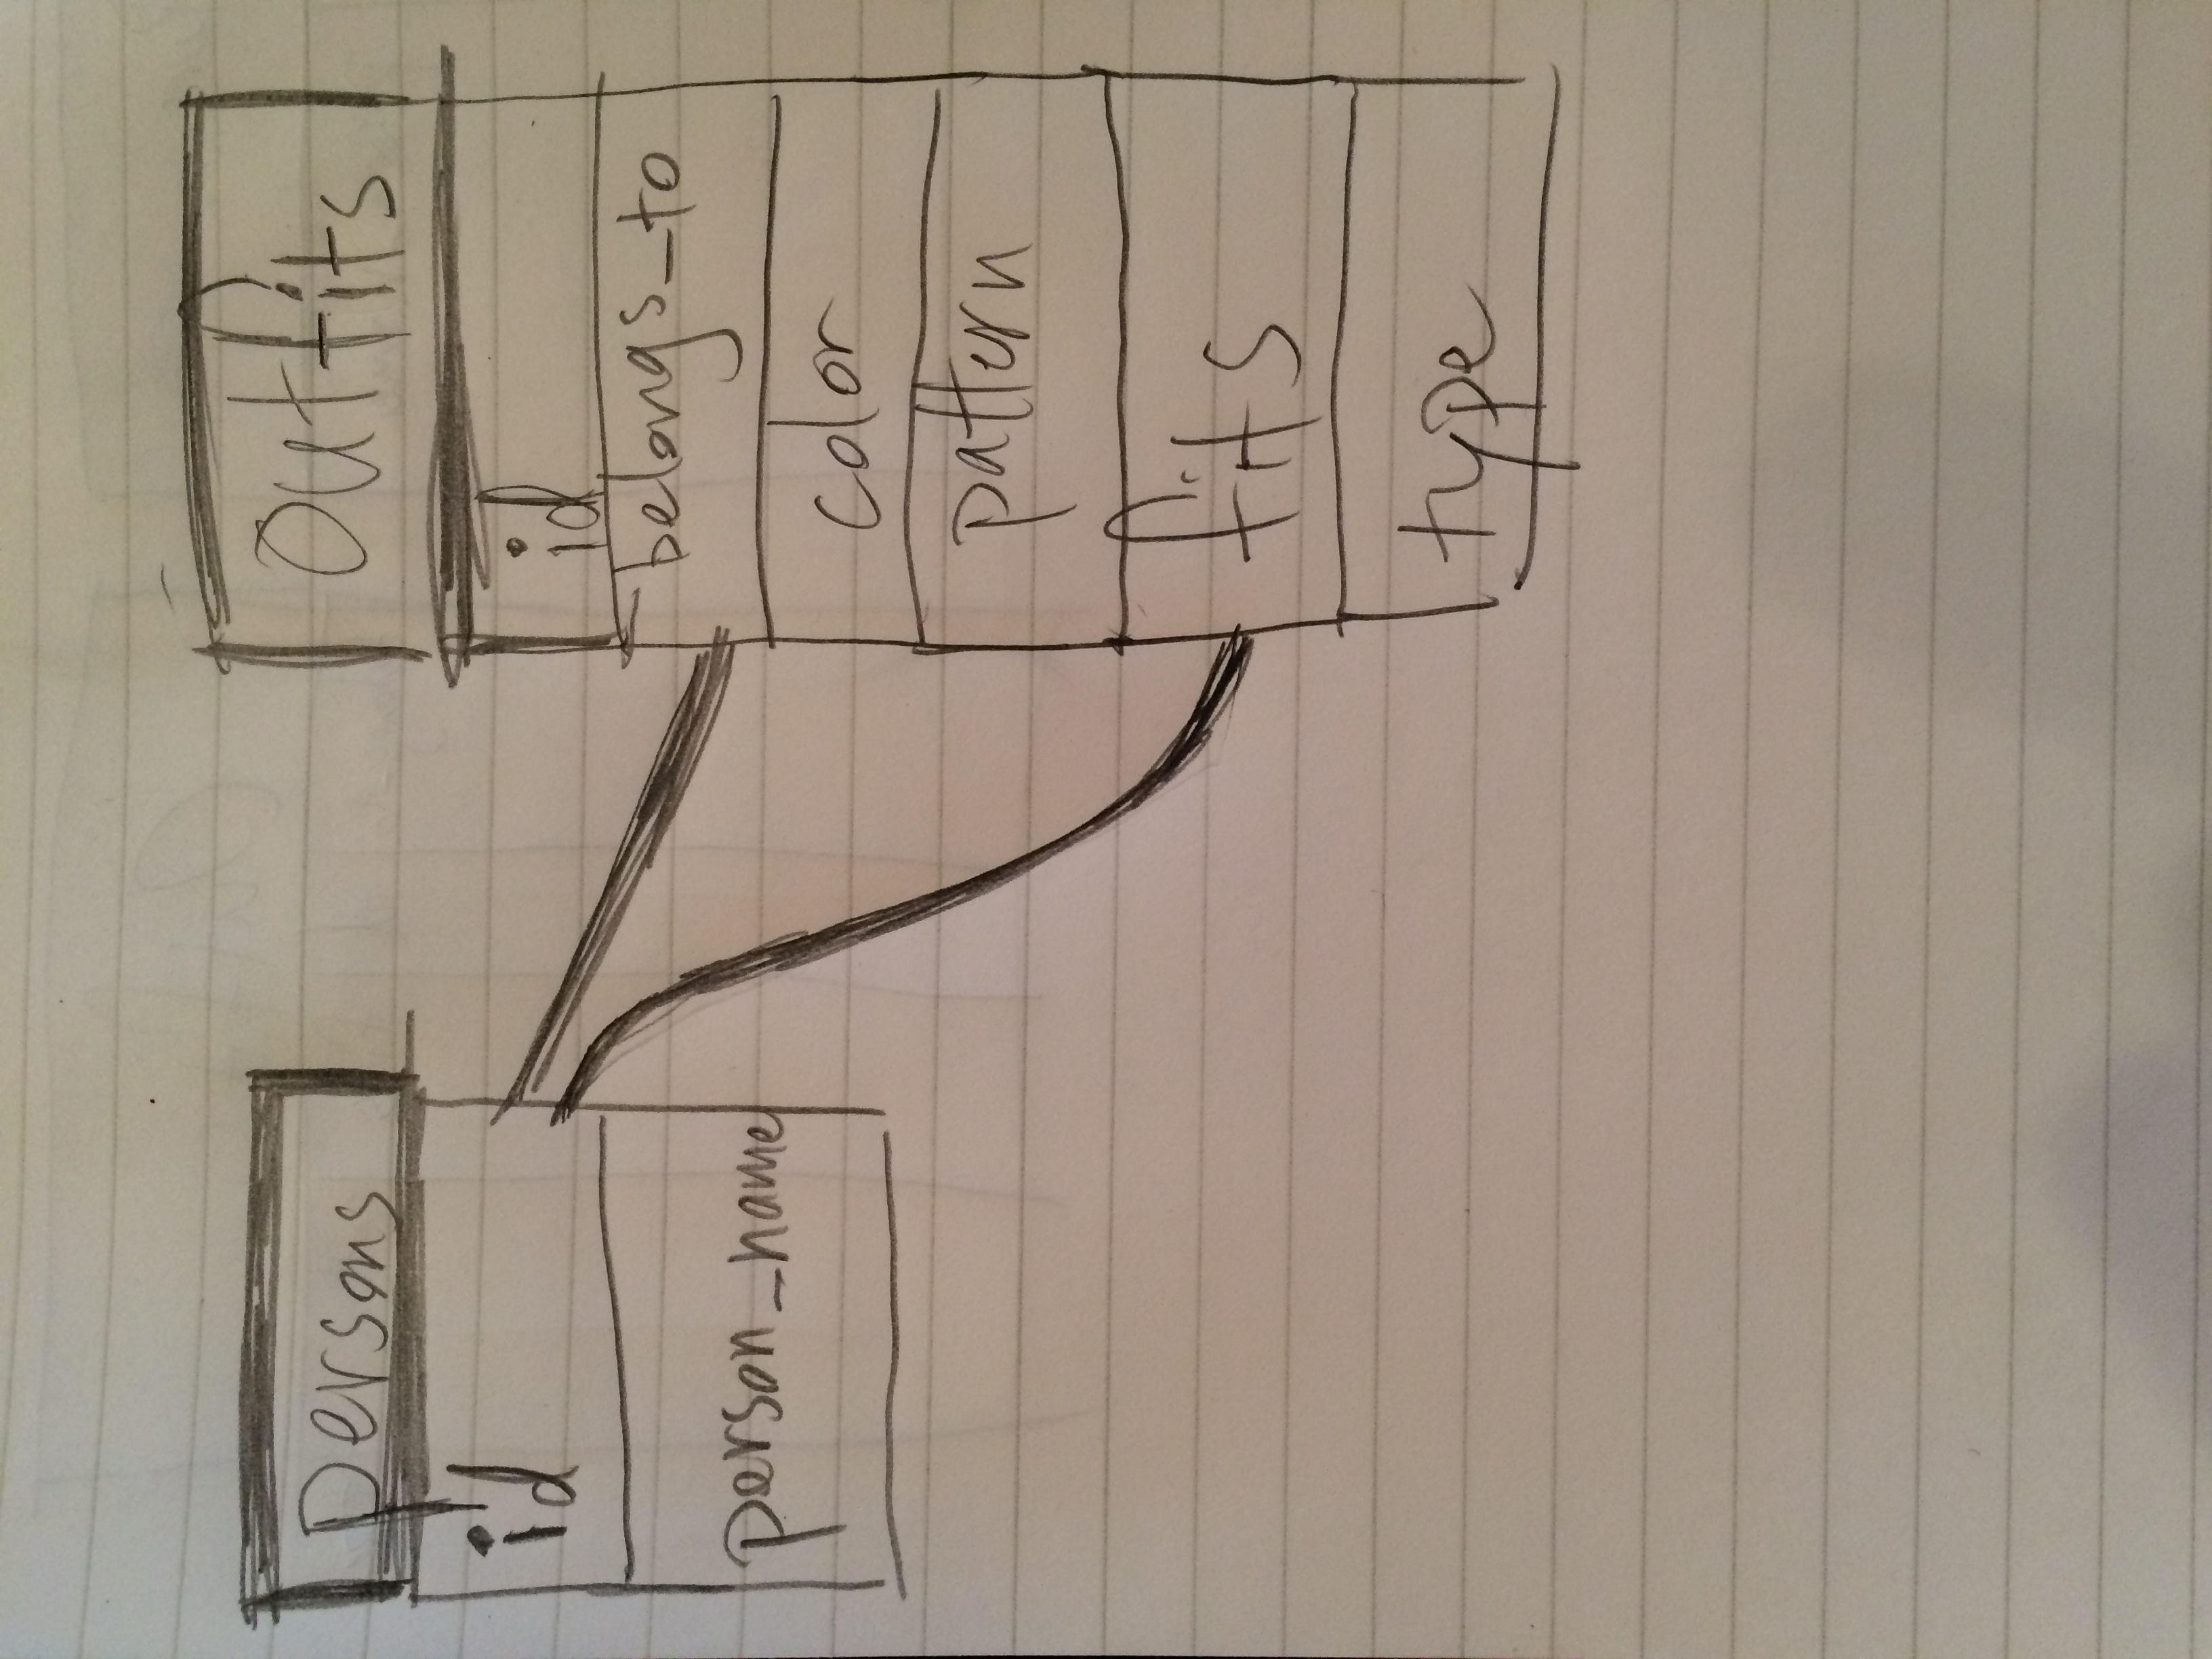 persons
id
person_name
outfits
id
belongs_to
color
pattern
fits
type